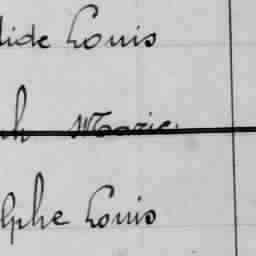 lide Louis
h Marie
lphe Louis